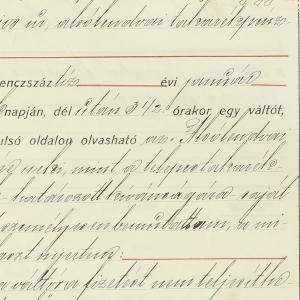 úr, alsólendvai takarékpénz-
enczszáz tíz évi január
napján, dél után 3 1/2 órakor egy váltót,
ulsó oldalon olvasható az Alsólendvai
neki, mint a teljes takarék-
határozott kívánságára saját
személyesen bemutattam, a mi-
nyertem:
a váltóra fizetést nem teljesítte-